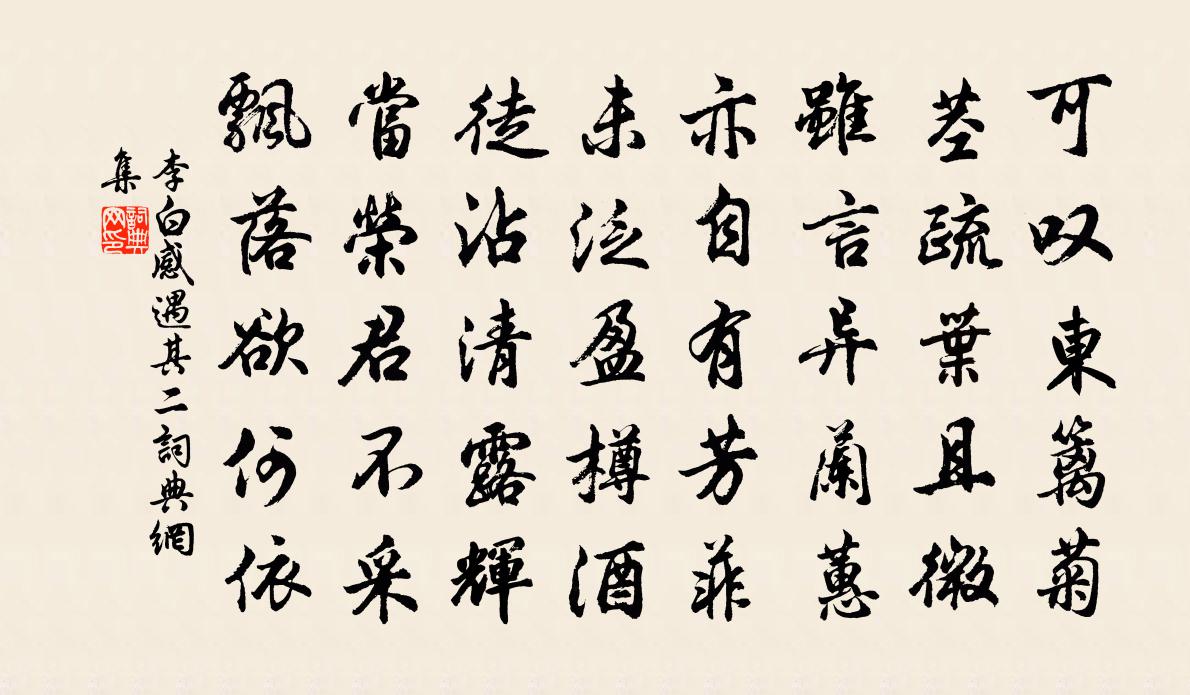 可叹東籬菊
茎疏葉且微
雖言异蘭蕙
亦自有芳菲
未泛盈樽酒
徒沾清露輝
當榮君不采
飄落欲何依
李白感遇其二詞典網
集
詞典網印